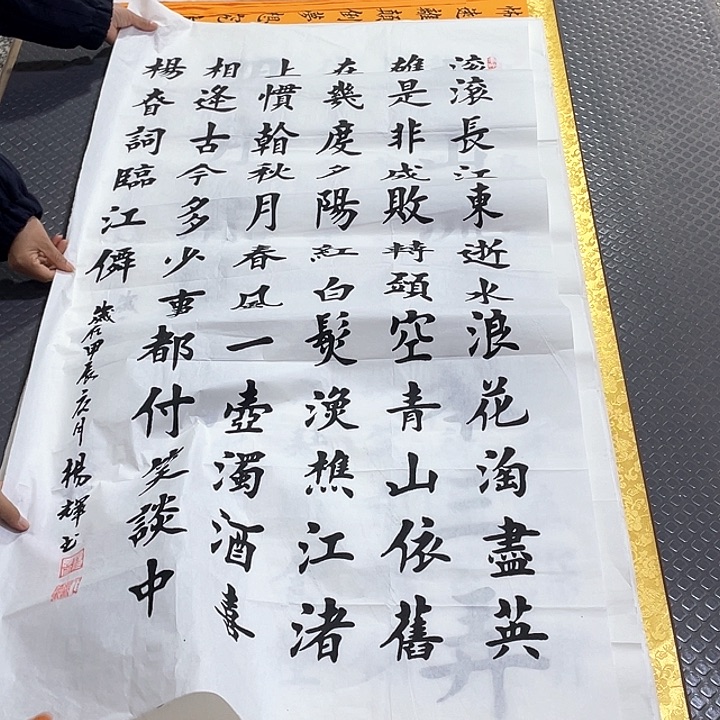 怖遠離顛倒夢想究
滾滾長江東逝水浪花淘盡英
雄是非成敗轉頭空青山依舊
在幾度夕陽紅白髮漁樵江渚
上慣看秋月春風一壺濁酒喜
相逢古今多少事都付笑談中
楊昚詞臨江僊
歲在甲辰庚月楊輝书